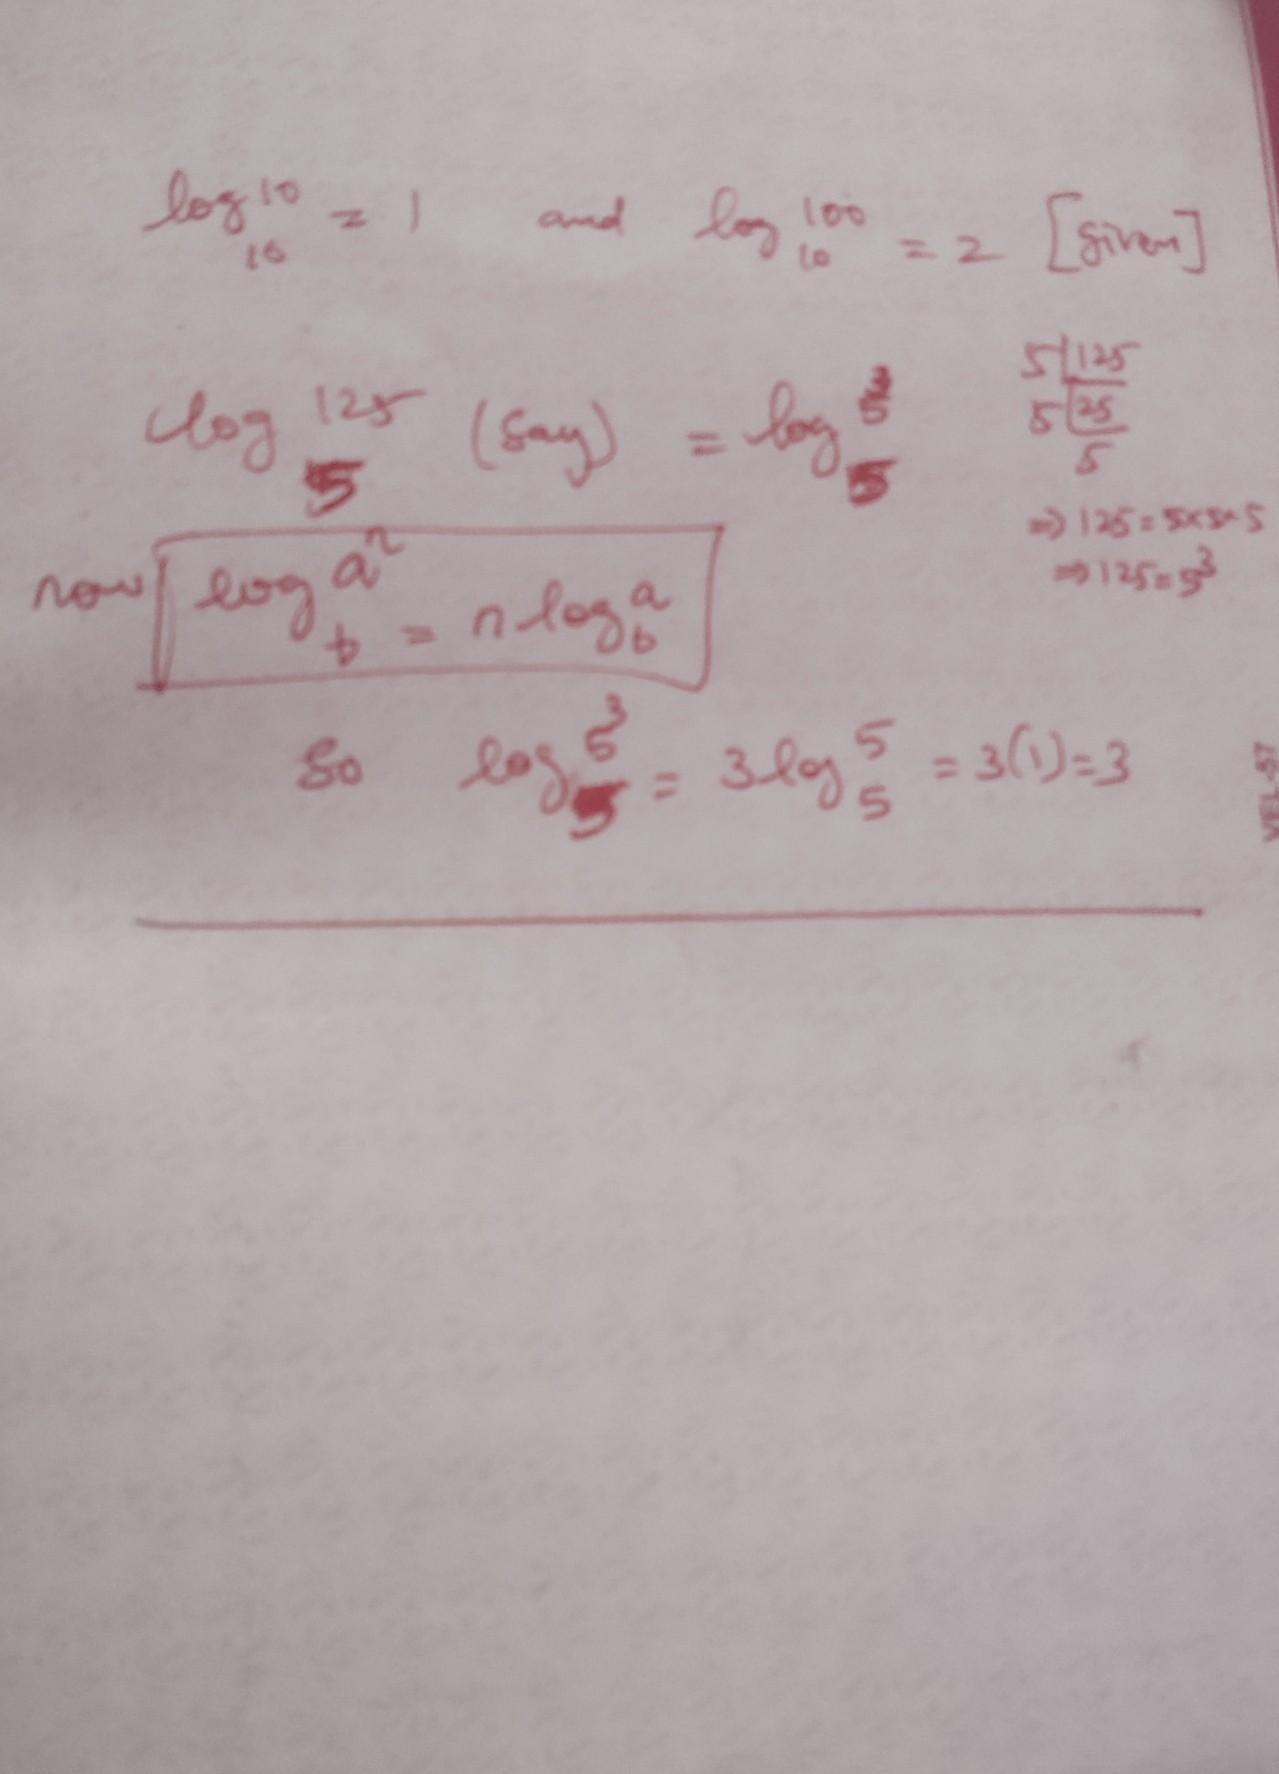 log₁₀10 = 1 and log₁₀100 = 2 [given]
log₅125 (Say) = log₅5³
5|125
5|25
5
⇒ 125 = 5×5×5
⇒ 125 = 5³
now logb aⁿ = n logb a
So log₅5³ = 3 log₅5 = 3(1) = 3